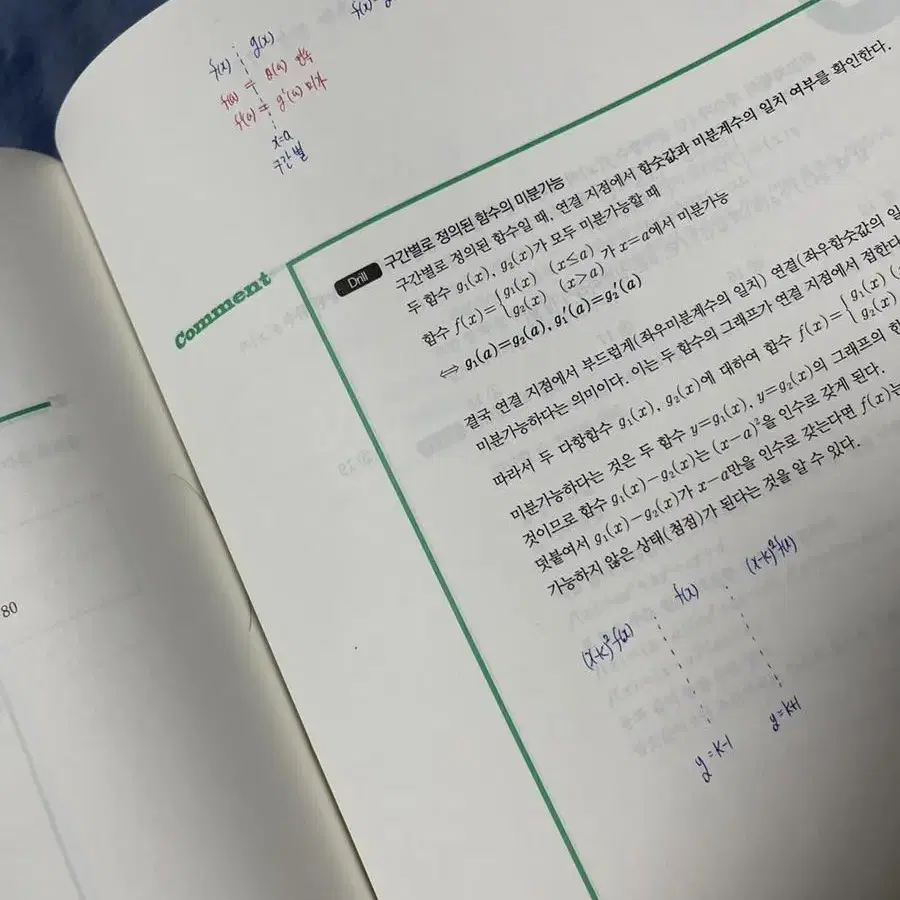 f(x) g(x)
f(a) = g(a) 연속
f'(a) = g'(a) 미가
x=a
구간별
Comment
Drill 구간별로 정의된 함수의 미분가능
구간별로 정의된 함수일 때, 연결 지점에서 함숫값과 미분계수의 일치 여부를 확인한다.
두 함수 g₁(x), g₂(x)가 모두 미분가능할 때
함수 f(x)={g₁(x) (x≤a) g₂(x) (x>a)가 x=a에서 미분가능
⇔ g₁(a)=g₂(a), g₁'(a)=g₂'(a)
결국 연결 지점에서 부드럽게(좌우미분계수의 일치) 연결(좌우함숫값의 일
미분가능하다는 의미이다. 이는 두 함수의 그래프가 연결 지점에서 접한다
따라서 두 다항함수 g₁(x), g₂(x)에 대하여 함수 f(x)={g₁(x) g₂(x)
미분가능하다는 것은 두 함수 y=g₁(x), y=g₂(x)의 그래프의
것이므로 함수 g₁(x)-g₂(x)는 (x-a)²을 인수로 갖게 된다.
덧붙여서 g₁(x)-g₂(x)가 x-a만을 인수로 갖는다면 f(x)는
가능하지 않은 상태(첨점)가 된다는 것을 알 수 있다.
(x-k)²f(x) f(x) (x-k)²f(x)
y=k-1 y=k+1
80